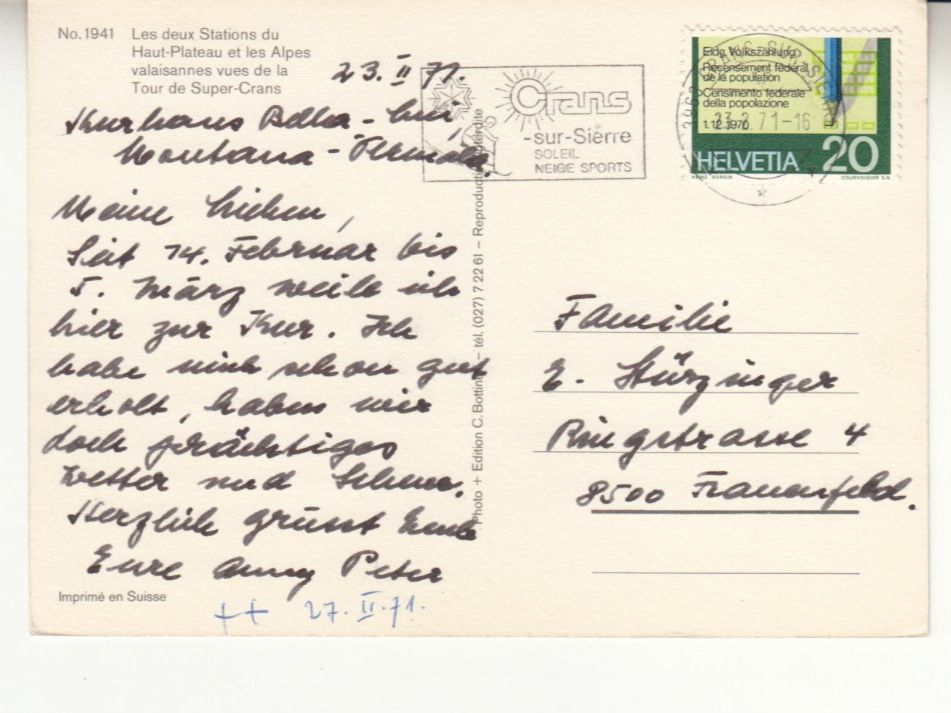 No. 1941 Les deux Stations du
Haut-Plateau et les Alpes
valaisannes vues de la
Tour de Super-Crans
23. II 71.
Kurhaus Bella-Lui,
Montana-Vermala.
Meine Lieben,
Seit 14. Februar bis
5. März weile ich
hier zur Kur. Ich
habe mich schon gut
erholt, haben wir
doch prächtiges
Wetter und Schnee.
Herzlich grüsst Euch
Eure Anny Peter
Imprimé en Suisse
++ 27. II. 71.
Photo + Edition C. Botting – tél. (027) 7 22 61 – Reproduction interdite
Crans
-sur-Sierre
SOLEIL
NEIGE SPORTS
Eidg. Volkszählung
Recensement fédéral
de la population
Censimento federale
della popolazione
1.12.1970
HELVETIA 20
COURVOISIER S.A.
23.2.71-16
Familie
E. Stürzinger
Ringstrasse 4
8500 Frauenfeld.